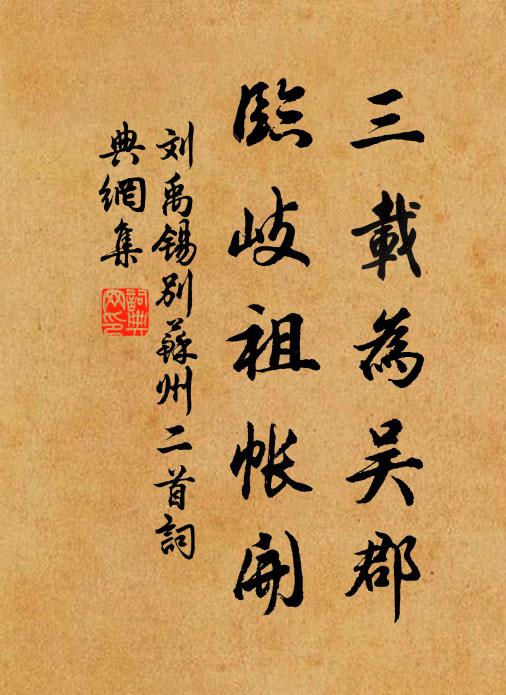 三載為吴郡
臨岐祖帐開
刘禹锡别蘇州二首詞
典網集
詞典
网印